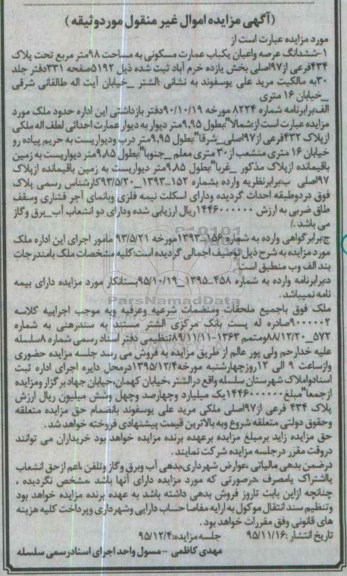 (آگهی مزایده اموال غیر منقول موردوثیقه)
مورد مزایده عبارت است از
۱-ششدانگ عرصه واعیان یکباب عمارت مسکونی به مساحت ۹۸متر مربع تحت پلاک
۴۳۴فرعی از۹۷اصلی بخش یازده خرم آباد ثبت شده ذیل ۵۱۹۲صفحه ۳۳۱دفتر جلد
۳۰به مالکیت مرید علی یوسفوند به نشانی :الشتر _خیابان آیت اله طالقانی شرقی
_خیابان ۱۶ متری
الف:برابرنامه شماره ۸۲۲۴ مورخه ۹۰/۱۰/۱۹دفتر بازداشتی این اداره حدود ملک مورد
مزایده عبارت است ازشمالا"بطول ۹،۹۵متر دیوار به دیوار عمارت احداثی لطف اله ملکی
ازپلاک ۴۳۲فرعی از۹۷اصلی_شرقا"بطول ۹،۸۵متر درب ودیواریست به حریم پیاده رو
خیابان ۱۶ متری منشعب از۳۰ متری معلم _جنوبا"بطول ۹،۸۵متر دیواریست به زمین
باقیمانده ازپلاک مذکور _غربا"بطول ۹،۸۵متر دیواریست به زمین باقیمانده ازپلاک
۹۷اصلی ب:برابرنظریه وارده بشماره ۱۵۲_۱۳۹۳_۹۳/۵/۲۰کارشناس رسمی پلاک
فوق دردوطبقه احداث گردیده ودارای اسکلت نیمه فلزی ونمای آجر فشاری وسقف
طاق ضربی به ارزش ۱۴۴۶۰۰۰۰۰۰ ریال ارزیابی شده ودارای دو انشعاب آب_برق وگاز
می باشد./
ج:برابرگواهی وارده به شماره ۱۵۶_۱۳۹۳مورخه ۹۳/۵/۲۱ مامور اجرای این اداره ملک
مورد مزایده به شرح ذیل توصیف اجمالی گردیده است:کلیه مشخصات ملک بامندرجات
بند الف وب منطبق است.
د:برابرنامه وارده به شماره ۴۵۸_۱۳۹۵_۹۵/۱۰/۱۹بستانکار مورد مزایده دارای بیمه
نامه نمیباشد.
ملک فوق باجمیع ملحقات ومتضمات شرعیه وعرفیه وبه موجب اجراییه کلاسه
۹۰۰۰۰۰۲صادره له پست بانک مرکزی الشتر مستند به سندرهنی به شماره
۵۷۲_۸۸/۱۲/۲۰ومتمم ۱۳۶۳-۸۹/۱۱/۱۱تنظیمی دفتر اسناد رسمی شماره ۸سلسله
علیه خدارحم ولی پور عالم از طریق مزایده به فروش می رسد جلسه مزایده حضوری
وازساعت ۹ الی ۱۲ روزچهارشنبه مورخه۱۳۹۵/۱۲/۴درمحل دایره اجرای اداره ثبت
اسنادواملاک شهرستان سلسله واقع درالشتر،خیابان کهمان،خیابان جهاد بر گزار ومزایده
ازجمعا"مبلغ۱۴۴۶۰۰۰۰۰۰یک میلیارد وچهارصد وچهل وشش میلیون ریال ارزش
پلاک ۴۳۴ فرعی از۹۷اصلی ملکی مرید علی یوسفوند بانضمام حق مزایده متعلقه
وحقوق دولتی متعلقه شروع وبه بالاترین قیمت پیشنهادی فروخته خواهد شد.
حق مزایده زاید برمبلغ مزایده برعهده برنده مزایده خواهد بود خریداران می توانند
دروقت مقرر درجلسه مزایده شرکت نمایند.
درضمن بدهی مالیاتی ،عوارض شهرداری،بدهی آب وبرق وگاز وتلفن ،اعم ازحق انشعاب
یااشتراک یامصرف ،درصورتی که مورد مزایده دارای آنها باشد ،مشخص نگردیده ،
چنانچه ازاین بابت تاروز فروش بدهی داشته باشد به عهده برنده مزایده خواهد بود
وتنظیم سند انتقال موکول به ارایه مفاصا حساب دارایی وشهرداری وپرداخت کلیه هزینه
های قانونی وفق مقررات خواهد بود.
تاریخ انتشار :۹۵/۱۱/۱۶ جلسه مزایده:۹۵/۱۲/۴
مهدی کاظمی -مسول واحد اجرای اسنادرسمی سلسله
ParsNamadData